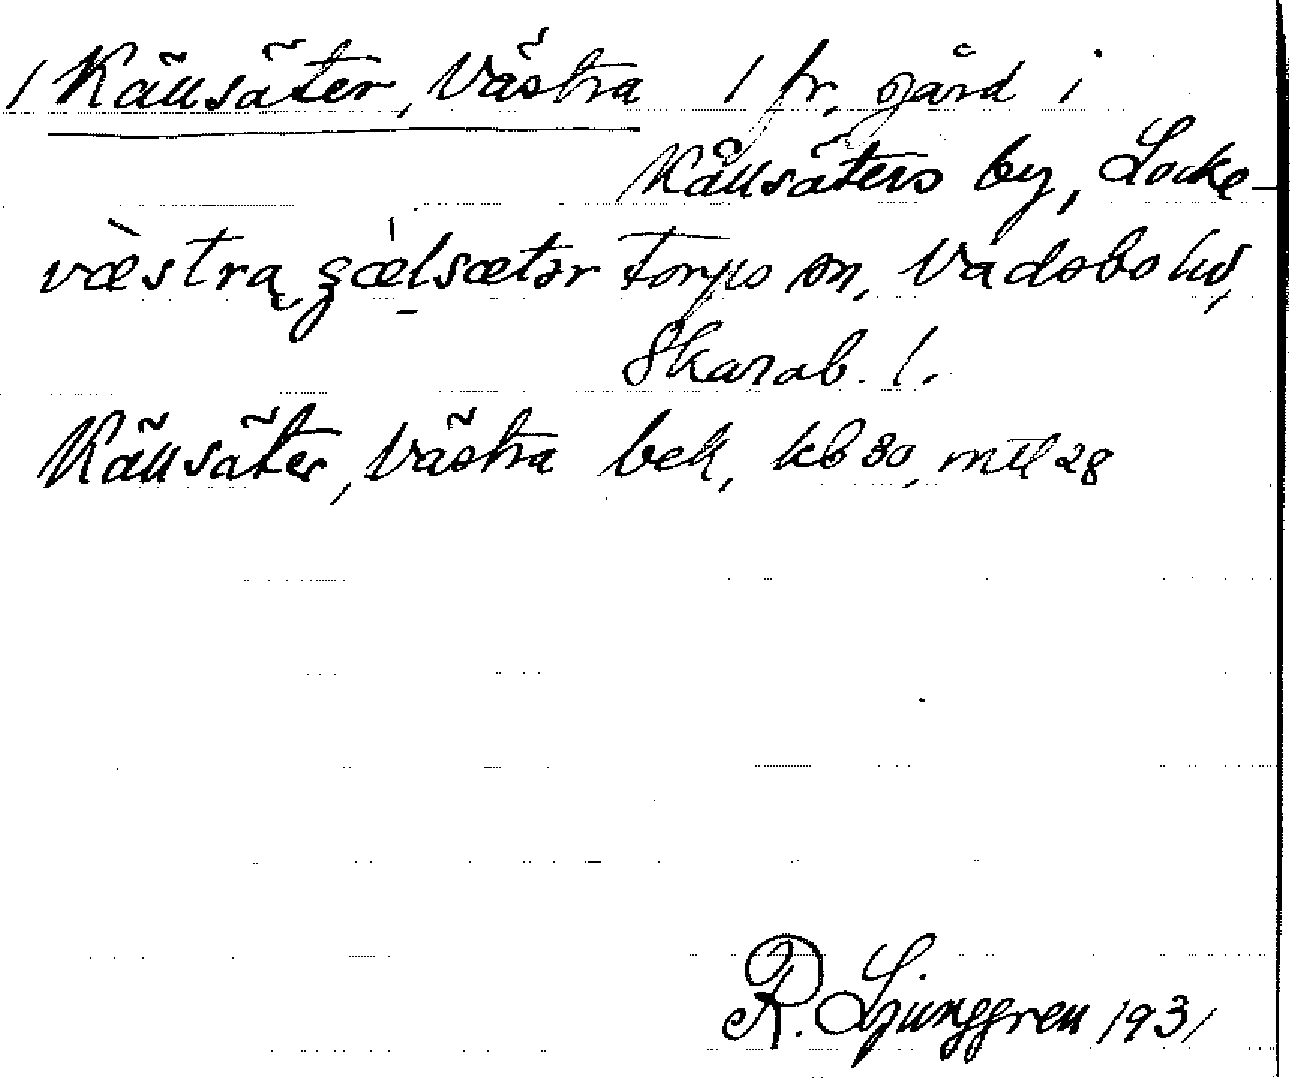 1 Källsäter, Västra 1 fr. gård i
Källsäters by, Locke-
væ̀stra, gæ̀lsætər Torps sn, Vadsbo hd,
Skarab. l.
Källsäter, Västra bek, kb 30, mtl 28
R. Ljunggren 1931